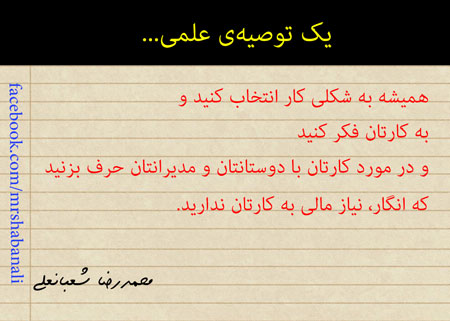 یک توصیه‌ی علمی...
همیشه به شکلی کار انتخاب کنید و
به کارتان فکر کنید
و در مورد کارتان با دوستانتان و مدیرانتان حرف بزنید
که انگار، نیاز مالی به کارتان ندارید.
محمدرضا شعبانعلی
facebook.com/mrshabanali